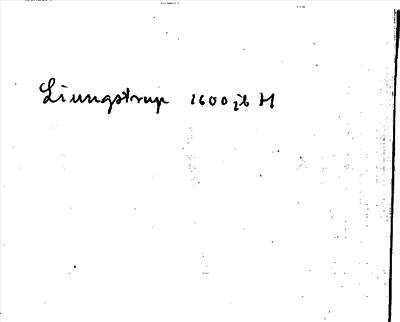 Liungstrup 1600jb H